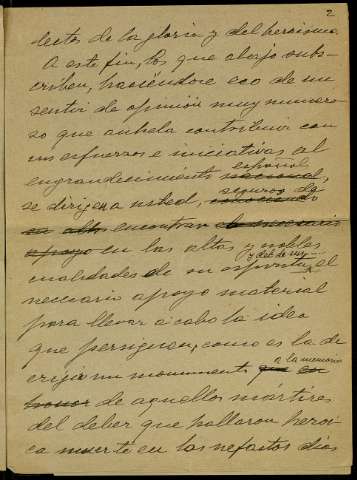 2
lectos de la gloria y del heroismo.
A este fin, los que abajo subs-
criben, haciéndose eco de un
sentir de opinión muy numero-
so que anhela contribuir con
sus esfuerzos e iniciativas al
español
engrandecimiento nacional,
seguros de
se dirigen a usted,
en alto encontrar el necesario
apoyo en las altas y nobles
y del de su
cualidades de su espíritu, el
necesario apoyo material
para llevar a cabo la idea
que persiguen, como es la de
a la memoria
erigir un monumento que en
honor de aquellos mártires
del deber que hallaron heroi-
ca muerte en los nefastos días